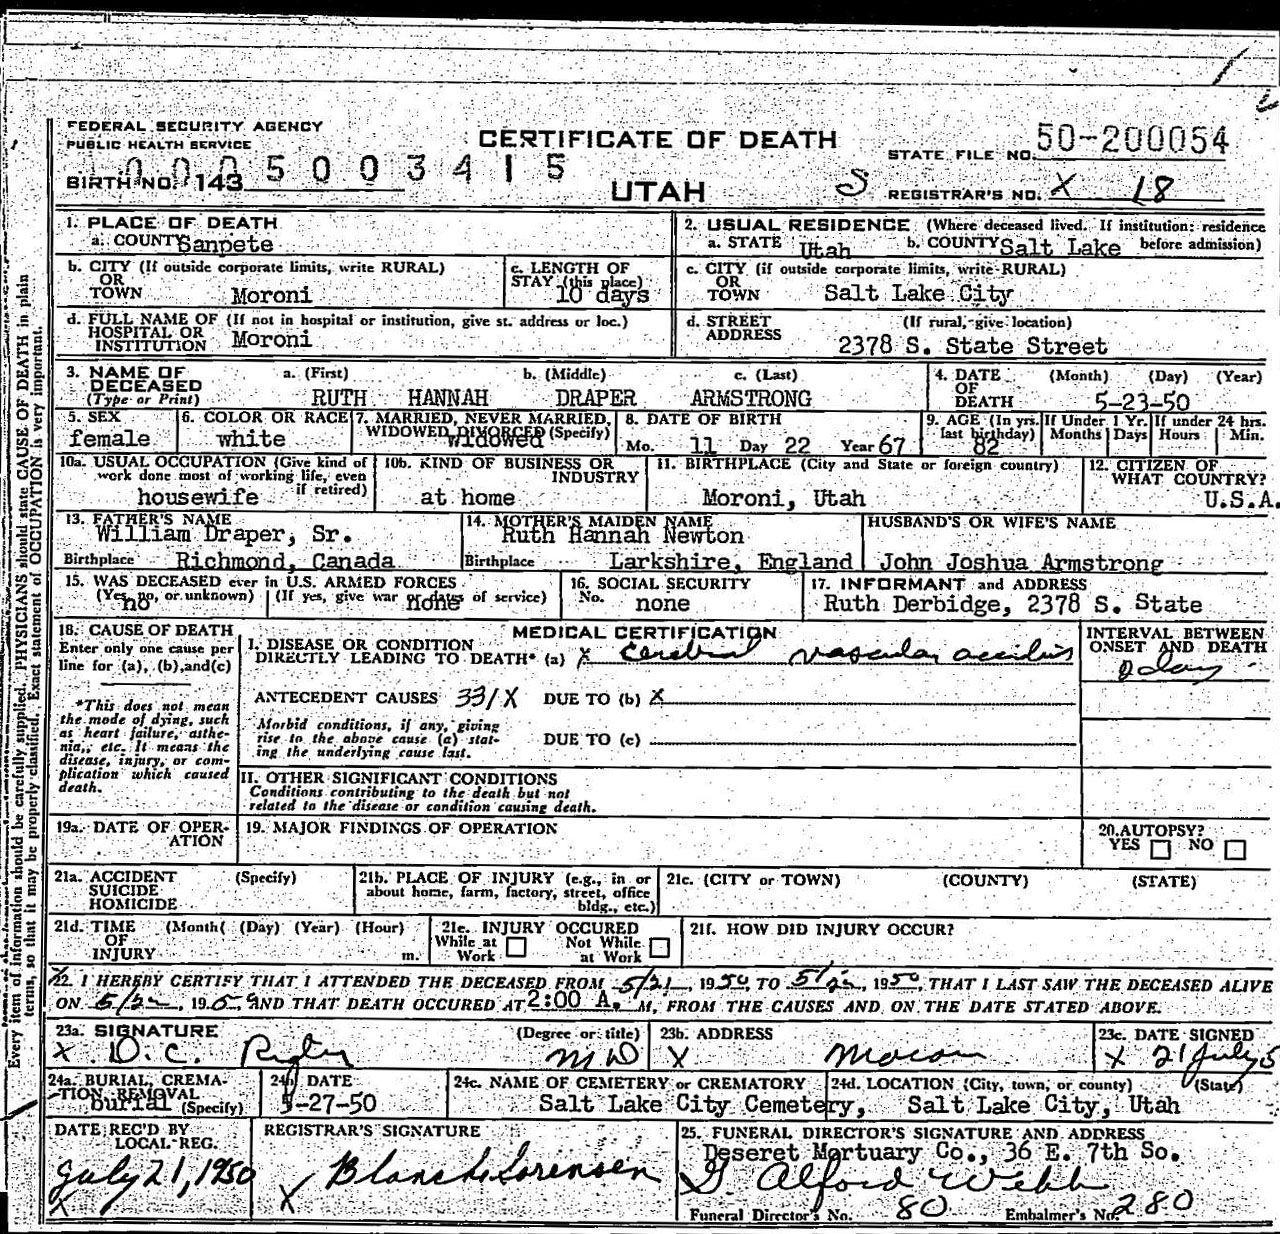 FEDERAL SECURITY AGENCY
PUBLIC HEALTH SERVICE
CERTIFICATE OF DEATH
STATE FILE NO. 50-200054
0005003415
BIRTH NO. 143
UTAH
S
REGISTRAR'S NO. X 18
1. PLACE OF DEATH
a. COUNTY Sanpete
2. USUAL RESIDENCE (Where deceased lived. If institution: residence before admission)
a. STATE Utah b. COUNTY Salt Lake
b. CITY (If outside corporate limits, write RURAL)
OR
TOWN Moroni
c. LENGTH OF
STAY (this place)
10 days
c. CITY (if outside corporate limits, write RURAL)
OR
TOWN Salt Lake City
d. FULL NAME OF (If not in hospital or institution, give st. address or loc.)
HOSPITAL OR
INSTITUTION Moroni
d. STREET (If rural, give location)
ADDRESS
2378 S. State Street
3. NAME OF
DECEASED
(Type or Print)
a. (First) b. (Middle) c. (Last)
RUTH HANNAH DRAPER ARMSTRONG
4. DATE (Month) (Day) (Year)
OF
DEATH 5-23-50
5. SEX
female
6. COLOR OR RACE
white
7. MARRIED, NEVER MARRIED,
WIDOWED, DIVORCED (Specify)
widowed
8. DATE OF BIRTH
Mo. 11 Day 22 Year 67
9. AGE (In yrs. last birthday)
82
If Under 1 Yr.
Months Days
If under 24 hrs.
Hours Min.
10a. USUAL OCCUPATION (Give kind of
work done most of working life, even
if retired)
housewife
10b. KIND OF BUSINESS OR
INDUSTRY
at home
11. BIRTHPLACE (City and State or foreign country)
Moroni, Utah
12. CITIZEN OF
WHAT COUNTRY?
U.S.A.
13. FATHER'S NAME
William Draper, Sr.
Birthplace Richmond, Canada
14. MOTHER'S MAIDEN NAME
Ruth Hannah Newton
Birthplace Larkshire, England
HUSBAND'S OR WIFE'S NAME
John Joshua Armstrong
15. WAS DECEASED ever in U.S. ARMED FORCES
(Yes, no, or unknown) (If yes, give war or dates of service)
no none
16. SOCIAL SECURITY
No. none
17. INFORMANT and ADDRESS
Ruth Derbidge, 2378 S. State
18. CAUSE OF DEATH
Enter only one cause per
line for (a), (b), and (c)
*This does not mean
the mode of dying, such
as heart failure, asthe-
nia, etc. It means the
disease, injury, or com-
plication which caused
death.
MEDICAL CERTIFICATION
I. DISEASE OR CONDITION
DIRECTLY LEADING TO DEATH* (a) X Cerebral vascular
INTERVAL BETWEEN
ONSET AND DEATH
ANTECEDENT CAUSES 331X DUE TO (b) X
Morbid conditions, if any, giving
rise to the above cause (a) stat-
ing the underlying cause last.
DUE TO (c)
II. OTHER SIGNIFICANT CONDITIONS
Conditions contributing to the death but not
related to the disease or condition causing death.
19a. DATE OF OPER-
ATION
19. MAJOR FINDINGS OF OPERATION
20. AUTOPSY?
YES NO
21a. ACCIDENT (Specify)
SUICIDE
HOMICIDE
21b. PLACE OF INJURY (e.g., in or
about home, farm, factory, street, office
bldg., etc.)
21c. (CITY or TOWN) (COUNTY) (STATE)
21d. TIME (Month) (Day) (Year) (Hour)
OF
INJURY m.
21e. INJURY OCCURED
While at Work Not While at Work
21f. HOW DID INJURY OCCUR?
22. I HEREBY CERTIFY THAT I ATTENDED THE DECEASED FROM 5/21, 1950, TO 5/22, 1950, THAT I LAST SAW THE DECEASED ALIVE
ON 5/22, 1950 AND THAT DEATH OCCURED AT 2:00 A. M, FROM THE CAUSES AND ON THE DATE STATED ABOVE.
23a. SIGNATURE (Degree or title)
X D.C. Rigby MD
23b. ADDRESS
X Moroni
23c. DATE SIGNED
X 21 July 5
24a. BURIAL, CREMA-
TION, REMOVAL
burial (Specify)
24b. DATE
5-27-50
24c. NAME OF CEMETERY or CREMATORY
Salt Lake City Cemetery,
24d. LOCATION (City, town, or county) (State)
Salt Lake City, Utah
DATE REC'D BY
LOCAL REG.
July 21, 1950
X
REGISTRAR'S SIGNATURE
X Blanch Sorensen
25. FUNERAL DIRECTOR'S SIGNATURE AND ADDRESS
Deseret Mortuary Co., 36 E. 7th So.
G. Alford Webb
Funeral Director's No. 80 Embalmer's No. 280
Every item of information should be carefully supplied. PHYSICIANS should state CAUSE OF DEATH in plain
terms, so that it may be properly classified. Exact statement of OCCUPATION is very important.